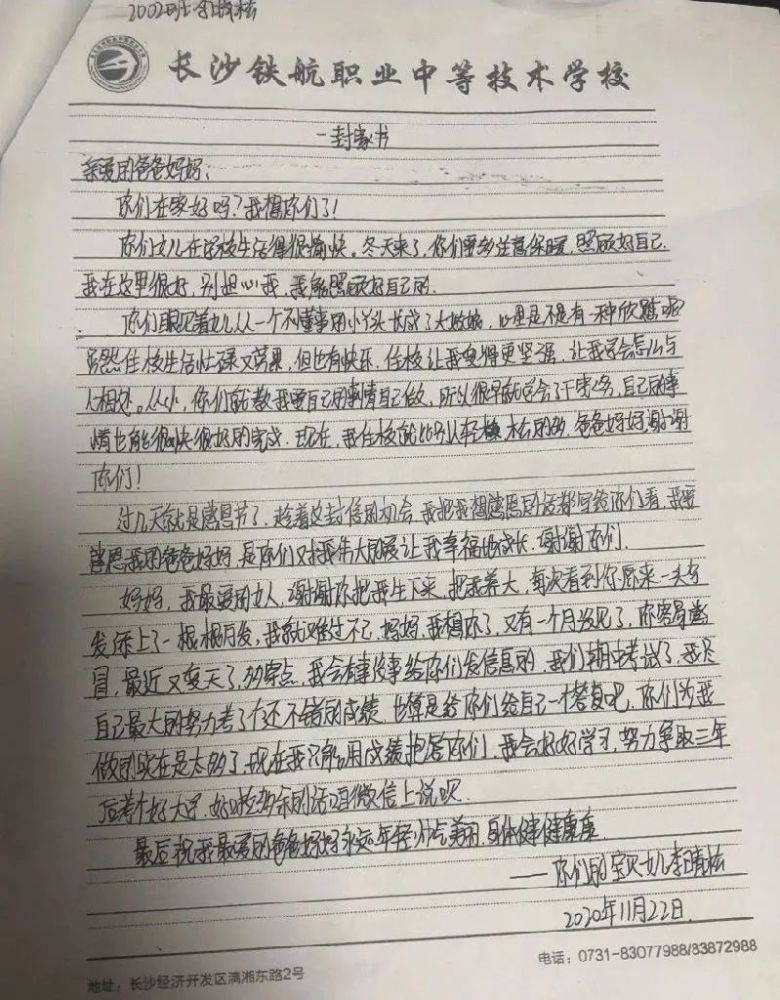 2002班
长沙铁航职业中等技术学校
一封家书
亲爱的爸爸妈妈:
你们在家好吗?我想你们了!
你们女儿在学校生活得很愉快。冬天来了,你们要多注意保暖,照顾好自己.
我在这里很好,别担心我,我能照顾好自己的.
你们眼见着女儿从一个不懂事的小丫头长成了大姑娘,心里是不是有一种欣慰呢?
虽然住校生活忙碌又劳累,但也有快乐,住校让我变得更坚强,让我学会怎么与
人相处。从小,你们就教我要自己的事情自己做,所以很早就学会了干家务,自己的事
情也能很快很好的完成.现在,我住校就比别人轻松的多,爸爸妈妈谢谢
你们!
过几天就是感恩节了,趁着这封信的机会,我把我想感恩的话都写给你们看,我要
感恩我的爸爸妈妈,是你们对我伟大的爱让我幸福地成长,谢谢你们.
妈妈,我最爱的女人,谢谢你把我生下来,把我养大,每次看到你原来一头乌
发添上了一根根白发,我就难过不已,妈妈,我想你了,又有一个月没见了,你容易感
冒,最近又变天了,多穿点,我会有事没事给你们发信息的,我们期中考试了,我尽
自己最大的努力考了个还不错的成绩,也算是给你们给自己一个答复吧,你们为我
做的实在是太多了,现在我只能用成绩报答你们,我会好好学习,努力争取三年
后考个好大学,好啦多余的话咱微信上说呗.
最后祝我最爱的爸爸妈妈永远年轻美丽,身体健健康康
——你们的宝贝女儿李
2020年11月22日.
电话:0731-83077988/83872988
地址:长沙经济开发区漓湘东路2号